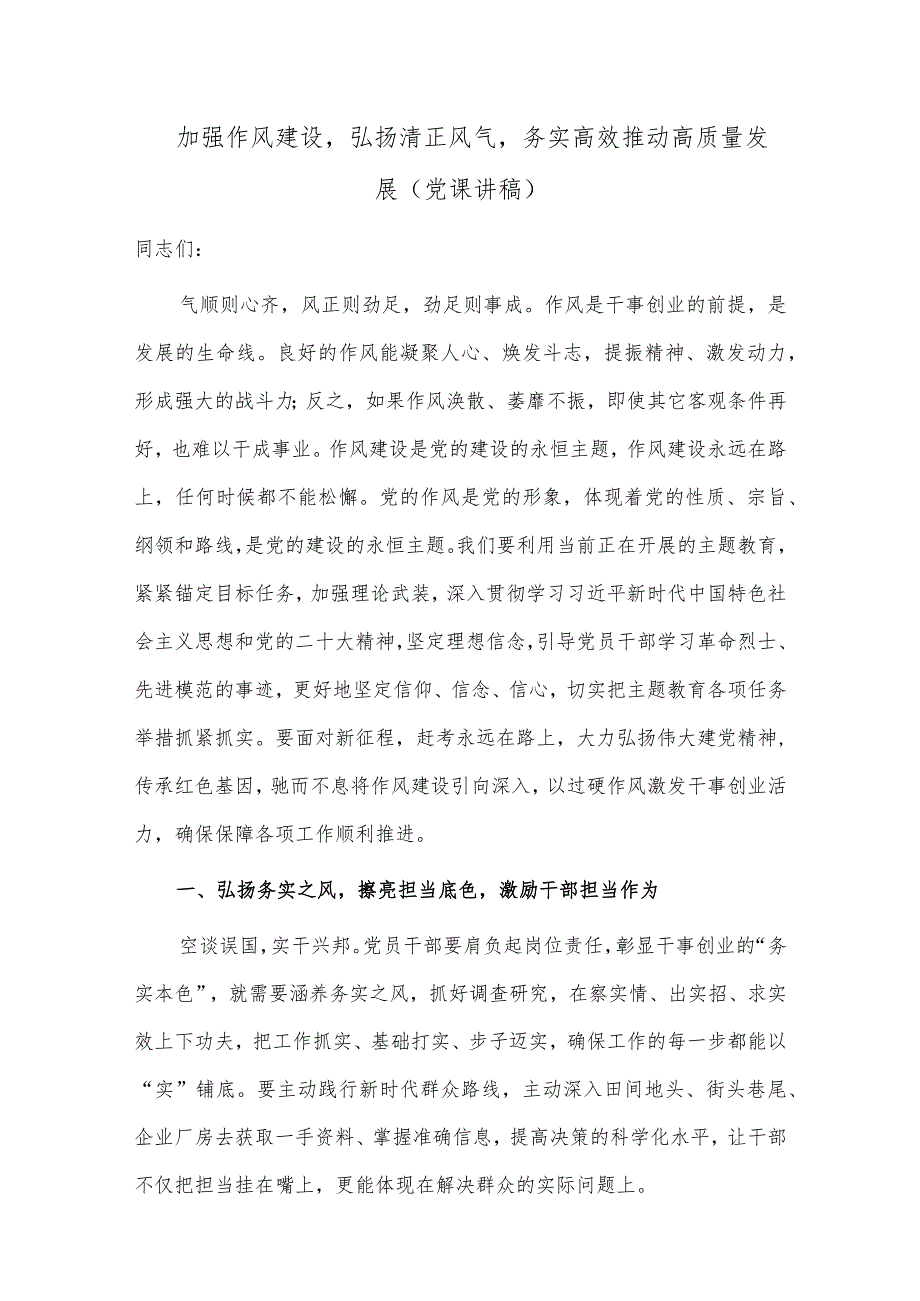 加强作风建设，弘扬清正风气，务实高效推动高质量发
展（党课讲稿）
同志们：
气顺则心齐，风正则劲足，劲足则事成。作风是干事创业的前提，是
发展的生命线。良好的作风能凝聚人心、焕发斗志，提振精神、激发动力，
形成强大的战斗力；反之，如果作风涣散、萎靡不振，即使其它客观条件再
好，也难以干成事业。作风建设是党的建设的永恒主题，作风建设永远在路
上，任何时候都不能松懈。党的作风是党的形象，体现着党的性质、宗旨、
纲领和路线，是党的建设的永恒主题。我们要利用当前正在开展的主题教育，
紧紧锚定目标任务，加强理论武装，深入贯彻学习习近平新时代中国特色社
会主义思想和党的二十大精神，坚定理想信念，引导党员干部学习革命烈士、
先进模范的事迹，更好地坚定信仰、信念、信心，切实把主题教育各项任务
举措抓紧抓实。要面对新征程，赶考永远在路上，大力弘扬伟大建党精神，
传承红色基因，驰而不息将作风建设引向深入，以过硬作风激发干事创业活
力，确保保障各项工作顺利推进。
一、弘扬务实之风，擦亮担当底色，激励干部担当作为
空谈误国，实干兴邦。党员干部要肩负起岗位责任，彰显干事创业的“务
实本色”，就需要涵养务实之风，抓好调查研究，在察实情、出实招、求实
效上下功夫，把工作抓实、基础打实、步子迈实，确保工作的每一步都能以
“实”铺底。要主动践行新时代群众路线，主动深入田间地头、街头巷尾、
企业厂房去获取一手资料、掌握准确信息，提高决策的科学化水平，让干部
不仅把担当挂在嘴上，更能体现在解决群众的实际问题上。